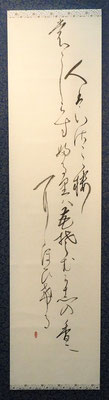 人はいさ心
もしらすふる里ハ花そむかしの香
にゝほひける